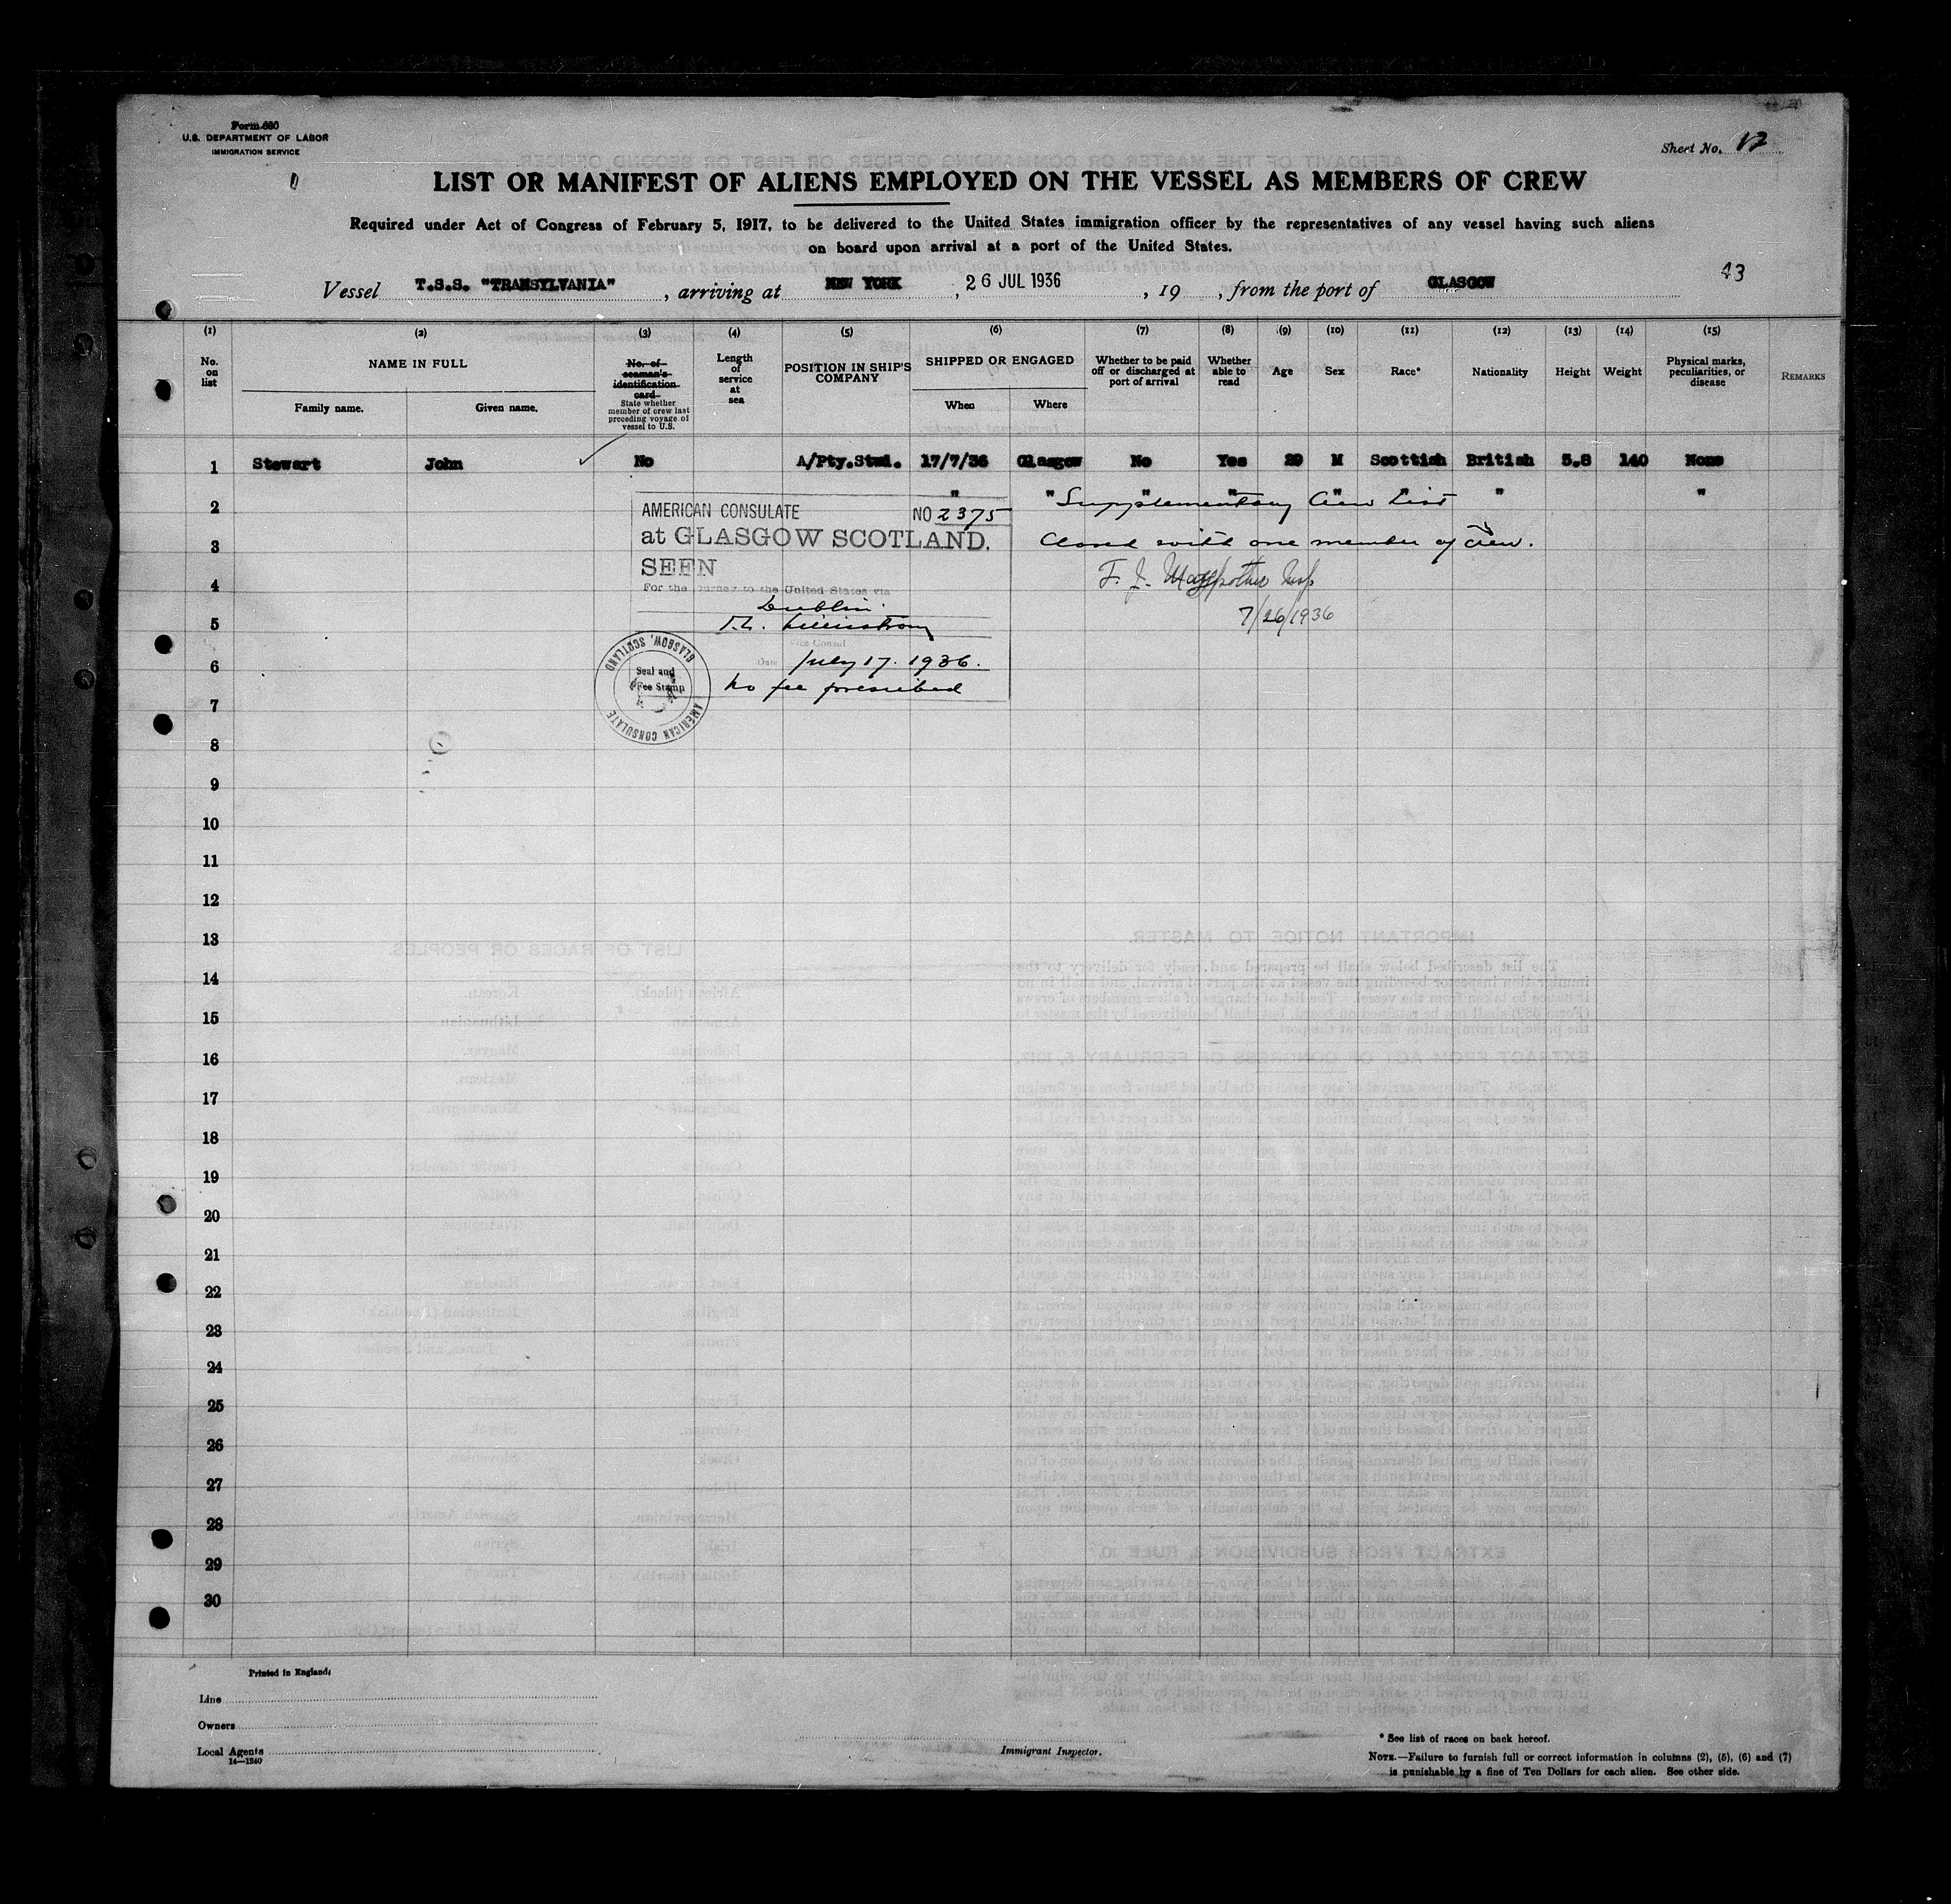 Form 680
U.S. DEPARTMENT OF LABOR
IMMIGRATION SERVICE
Sheet No.
LIST OR MANIFEST OF ALIENS EMPLOYED ON THE VESSEL AS MEMBERS OF CREW
Required under Act of Congress of February 5, 1917, to be delivered to the United States immigration officer by the representatives of any vessel having such aliens
on board upon arrival at a port of the United States.
43
Vessel T.S.S. "TRANSYLVANIA", arriving at NEW YORK, 26 JUL 1936, 19 , from the port of GLASGOW
(1) (2) (3) (4) (5) (6) (7) (8) (9) (10) (11) (12) (13) (14) (15)
No. on list
NAME IN FULL
Family name. Given name.
No. of seaman's identification card
State whether member of crew last preceding voyage of vessel to U.S.
Length of service at sea
POSITION IN SHIP'S COMPANY
SHIPPED OR ENGAGED
When Where
Whether to be paid off or discharged at port of arrival
Whether able to read
Age
Sex
Race*
Nationality
Height
Weight
Physical marks, peculiarities, or disease
REMARKS
1 Stewart John No A/Pty.Stwd. 17/7/36 Glasgow No Yes 29 M Scottish British 5.8 140 None
2 " " " " " " " "
Supplementary Crew List
3 Closed with one member of crew.
4 F. J.
5 7/26/1936
AMERICAN CONSULATE NO 2375
at GLASGOW SCOTLAND.
SEEN
For the journey to the United States via
Dublin.
Vice Consul
Date July 17. 1936.
No fee prescribed
GLASGOW, SCOTLAND
Seal and
Fee Stamp
AMERICAN CONSULATE
6
7
8
9
10
11
12
13
14
15
16
17
18
19
20
21
22
23
24
25
26
27
28
29
30
Printed in England.
Line
Owners
Local Agents
14—1240
Immigrant Inspector.
* See list of races on back hereof.
NOTE.—Failure to furnish full or correct information in columns (2), (5), (6) and (7)
is punishable by a fine of Ten Dollars for each alien. See other side.